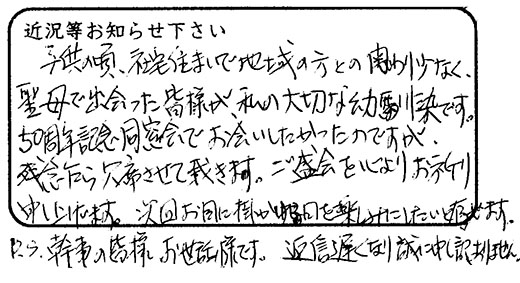 近況等お知らせ下さい
子供の頃、社宅住まいで地域の方との関わり少なく、
聖母で出会った皆様が、私の大切な幼馴染です。
50周年記念同窓会でお会いしたかったのですが、
残念ながら欠席させて戴きます。ご盛会を心よりお祈り
申し上げます。次回お目に掛かる日を楽しみにしたいと存じます。
P.S. 幹事の皆様お世話様です。返信遅くなり誠に申し訳ありません。